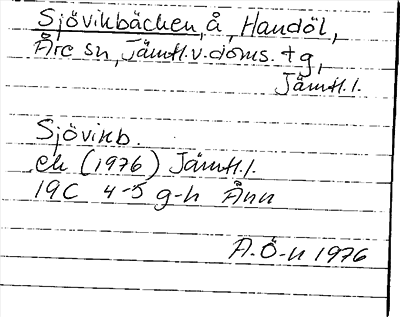 Sjövikbäcken, å, Handöl,
Åre sn, Jämtl.v.doms. tg,
Jämtl.l.
Sjövikb.
ek (1976) Jämtl.l.
19C 4-5 g-h Ånn
A.Ö-n 1976